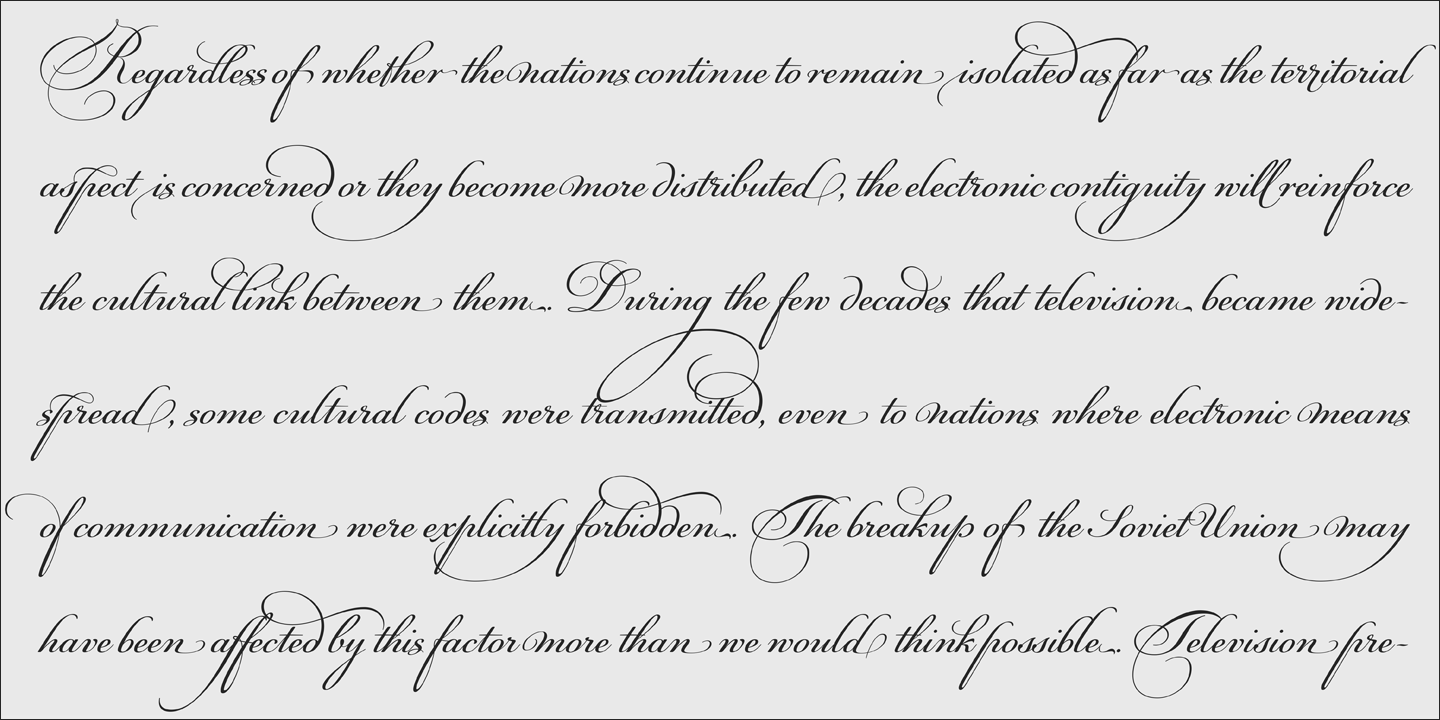 Regardless of whether the nations continue to remain isolated as far as the territorial
aspect is concerned or they become more distributed, the electronic contiguity will reinforce
the cultural link between them. During the few decades that television became wide-
spread, some cultural codes were transmitted, even to nations where electronic means
of communication were explicitly forbidden. The breakup of the Soviet Union may
have been affected by this factor more than we would think possible. Television pre-